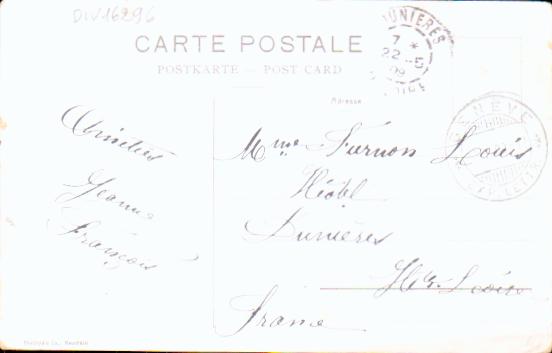 DIV16296
CARTE POSTALE
POSTKARTE — POST CARD
DUNIERES
7 *
22 -5
09
LOIRE
Adresse
GENEVE
EXP. LETTR.
Amitiés
Jeanne
François
Mme Furnon Louis
Hôtel
Dunières
Hte Loire
France